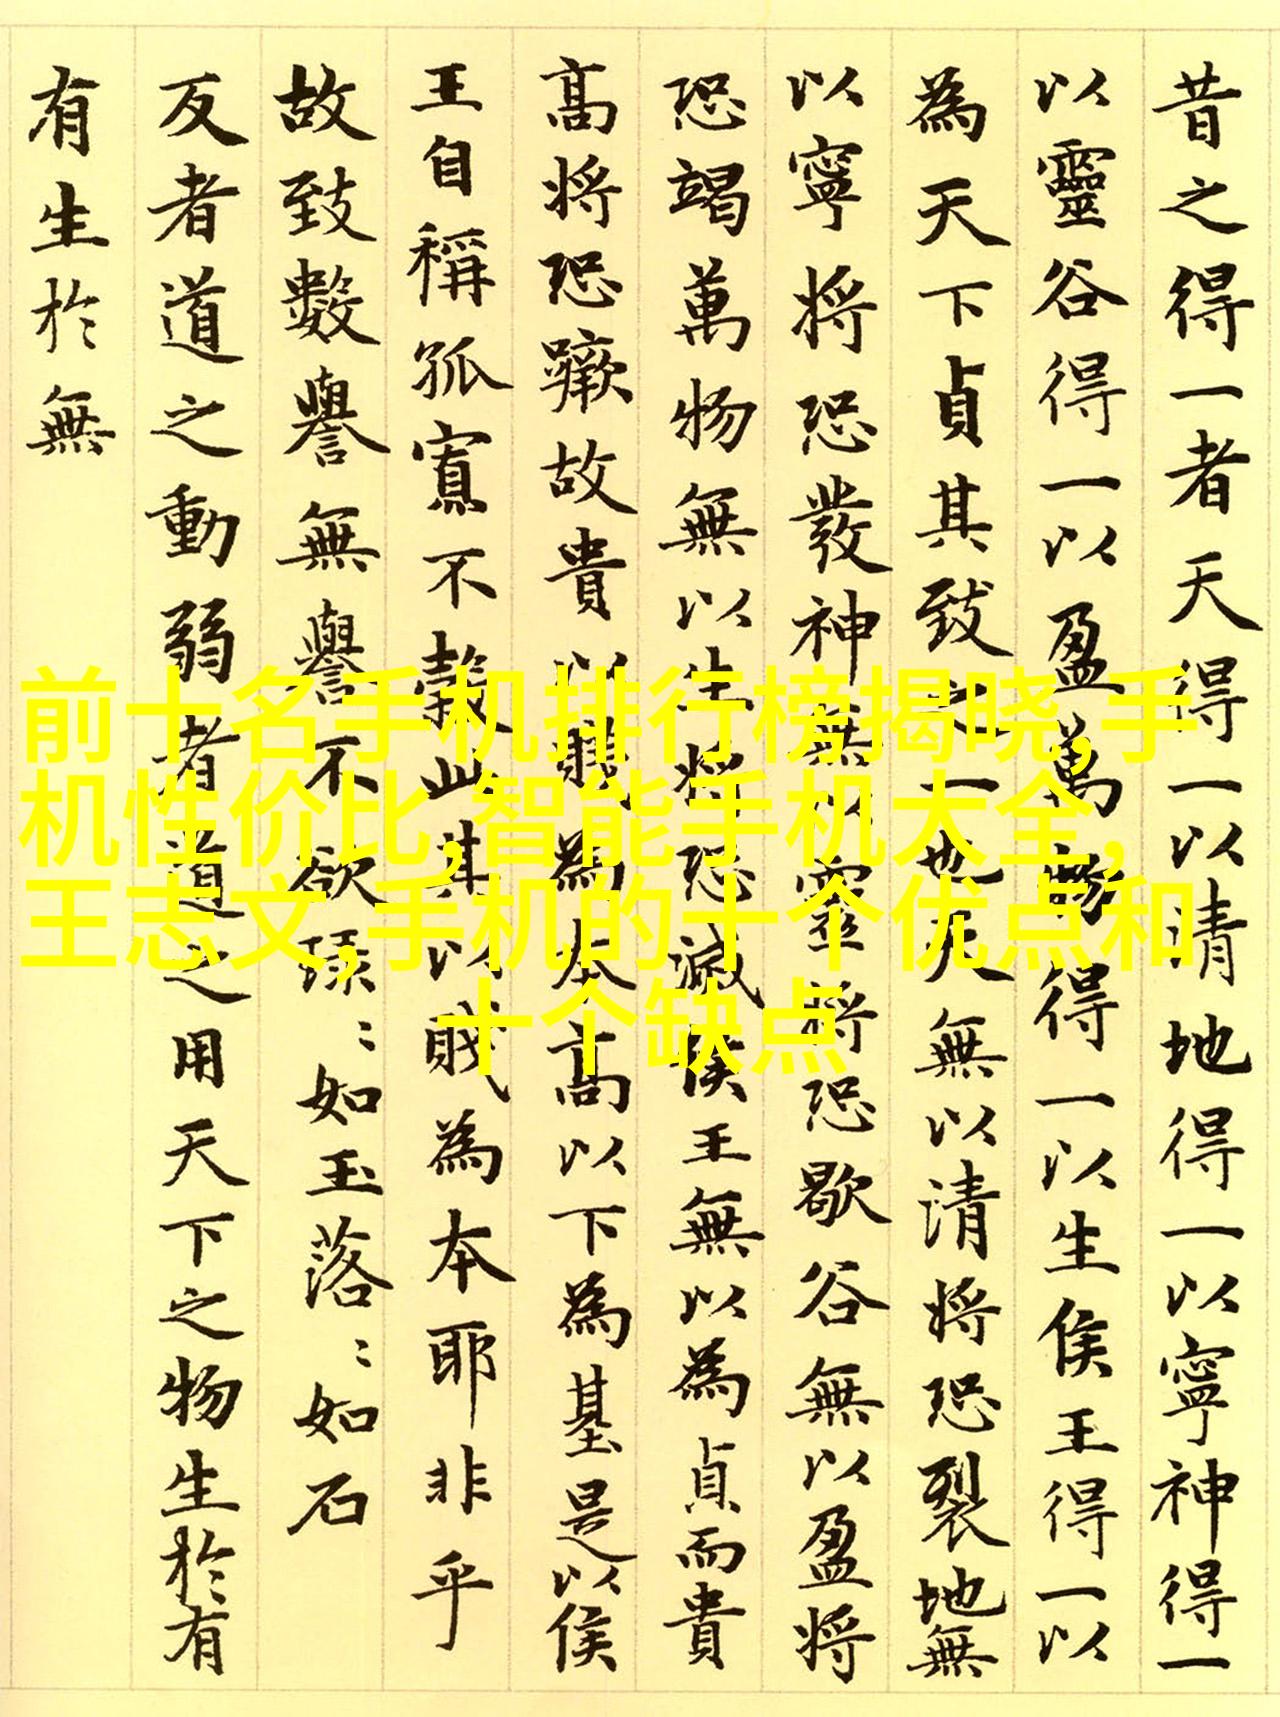 昔之得一者天得一以清地得一以寧神得一
以靈谷得一以盈萬物得一以生侯王得一以
為天下貞其致之一也天無以清將恐裂地無
以寧將恐發神無以靈將恐歇谷無以盈將
恐竭萬物無以生將恐滅侯王無以為貞而貴
高將恐蹶故貴以賤為本高以下為基是以侯
王自稱孤寡不穀此其以賤為本耶非乎
故致數譽無譽不欲琭〻如玉落〻如石
反者道之動弱者道之用天下之物生於有
有生於無
前十名手机排行榜揭晓,手
机性价比,智能手机大全,
王志文,手机的十个优点和
十个缺点